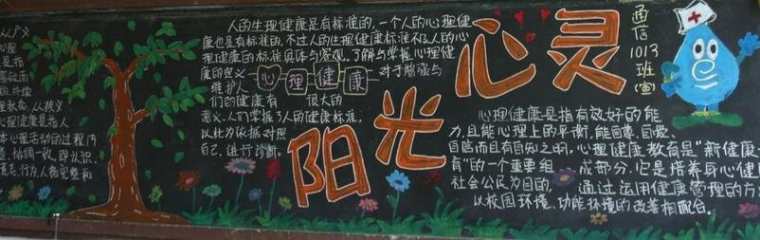 从广义
心理
是指
心理健康是指人
本心理活动的过程内
整、协调一致,即认识、
意志、行为、人格完整和
人的生理健康是有标准的,一个人的心理健
康也是有标准的。不过人的生理健康标准不及人的心
理健康的标准具体与客观。了解与掌握心理健
康的定义 心理健康 对于增强与
维护人
们的健康有 很大的
意义。人们掌握了人的健康标准,
以此为依据对照
自己,进行诊断。
阳光心灵
通信
1013
班(宣)
心理健康是指有效好的能
力,且能心理上的平衡,能自尊、自爱、
自信而且有自知之明。心理健康教育是“新健康
教育”的一个重要组成部分,它是培养身心健
社会公民为目的,通过运用健康管理的方
以校园环境、功能环境的改善相配合。